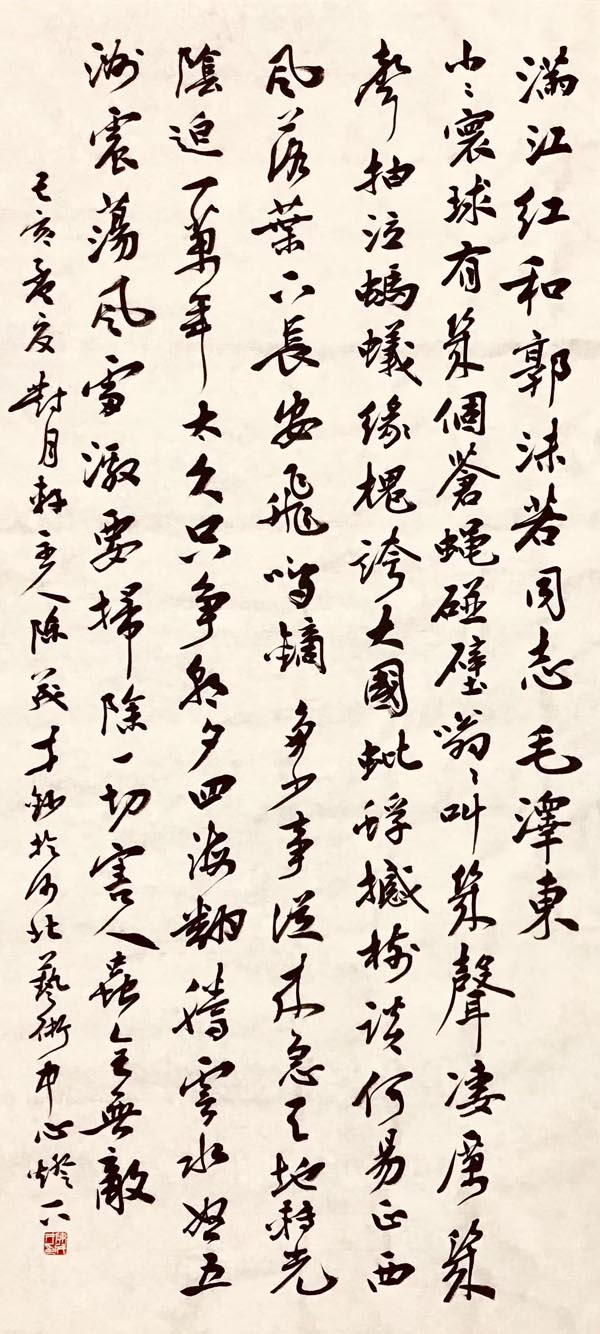 滿江红和郭沫若同志毛澤東
小〻寰球有幾個蒼蝇碰壁嗡〻叫幾聲凄厲幾
聲抽泣螞蟻缘槐誇大國蚍蜉撼樹談何易正西
風落葉下長安飛鳴鏑多少事從來急天地轉光
陰迫一萬年太久只争朝夕四海翻騰雲水怒五
洲震蕩風雷激要掃除一切害人蟲全無敵
己亥孟夏對月軒主人陳茂才鈔於河北藝術中心燈下